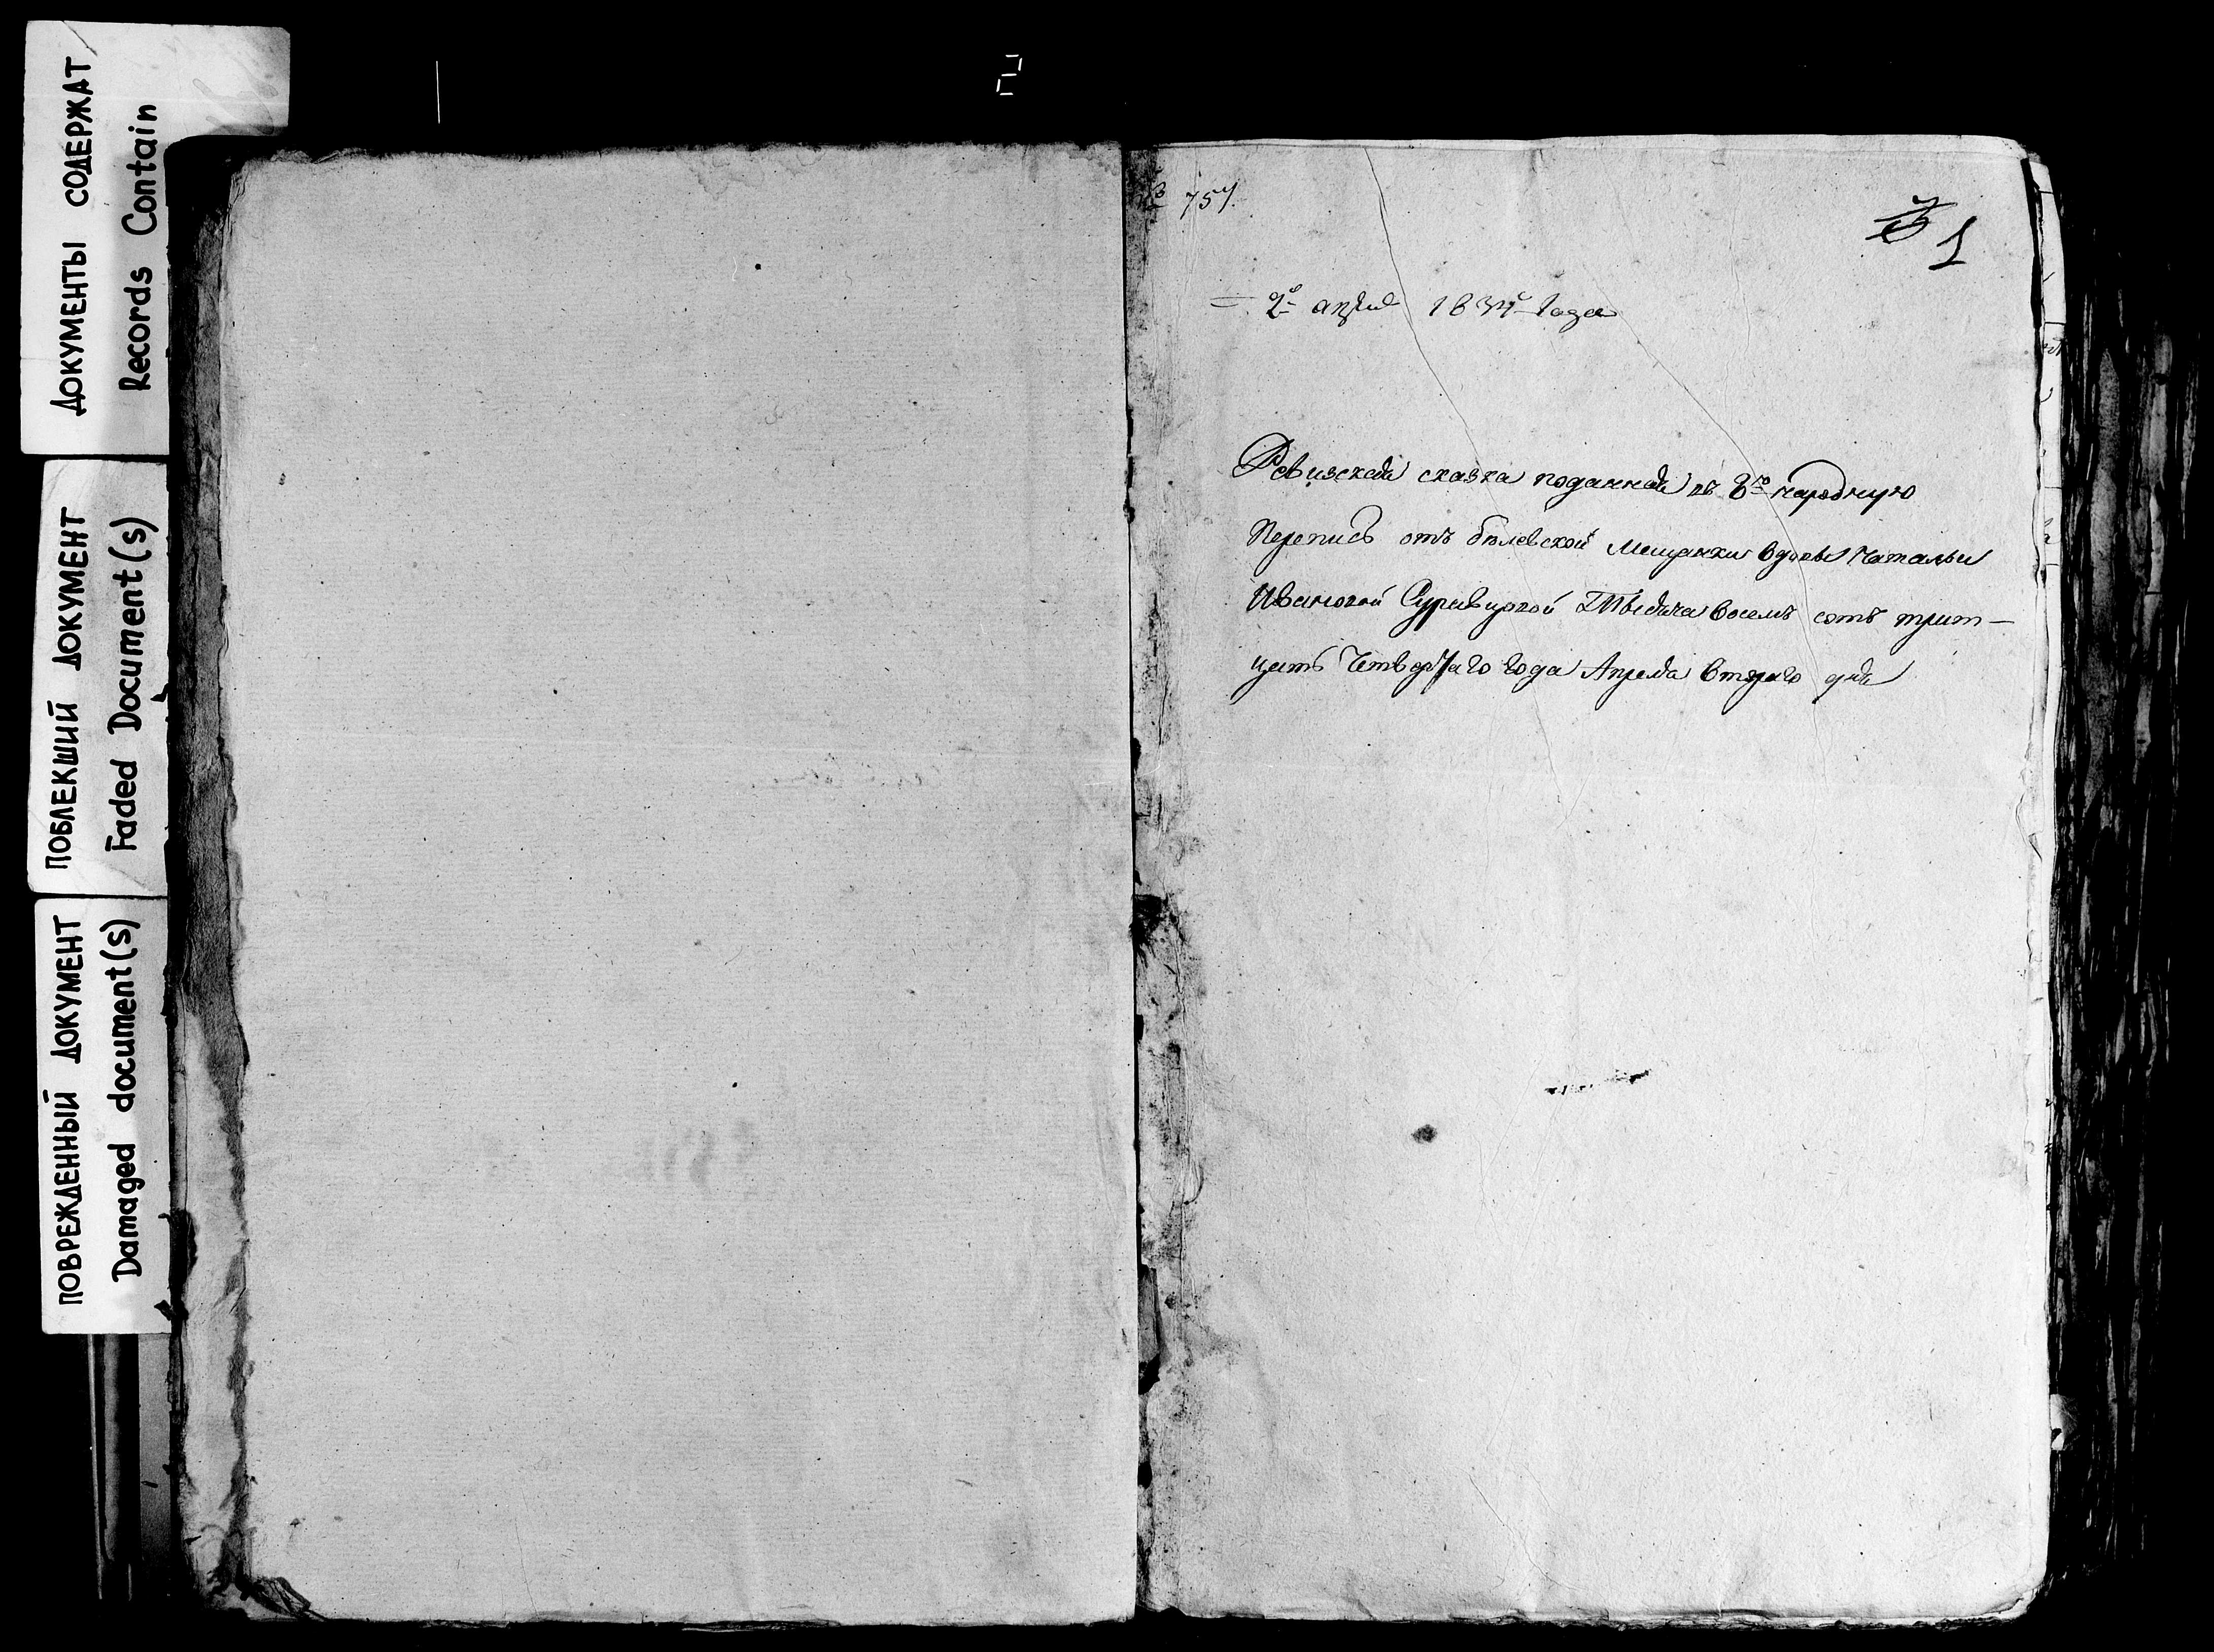 2
ДОКУМЕНТЫ СОДЕРЖАТ
Records Contain
ПОБЛЕКШИЙ ДОКУМЕНТ
Faded Document(s)
ПОВРЕЖДЕННЫЙ ДОКУМЕНТ
Damaged document(s)
№ 757.
1
2го апреля 1834го Года
Ревизская сказка поданная въ 8ю народную
Перепись отъ белевской Мещанки вдовы Натальи
Ивановой Тысяча восемъ сотъ трит-
цать Четвертаго Года Апреля втораго дня